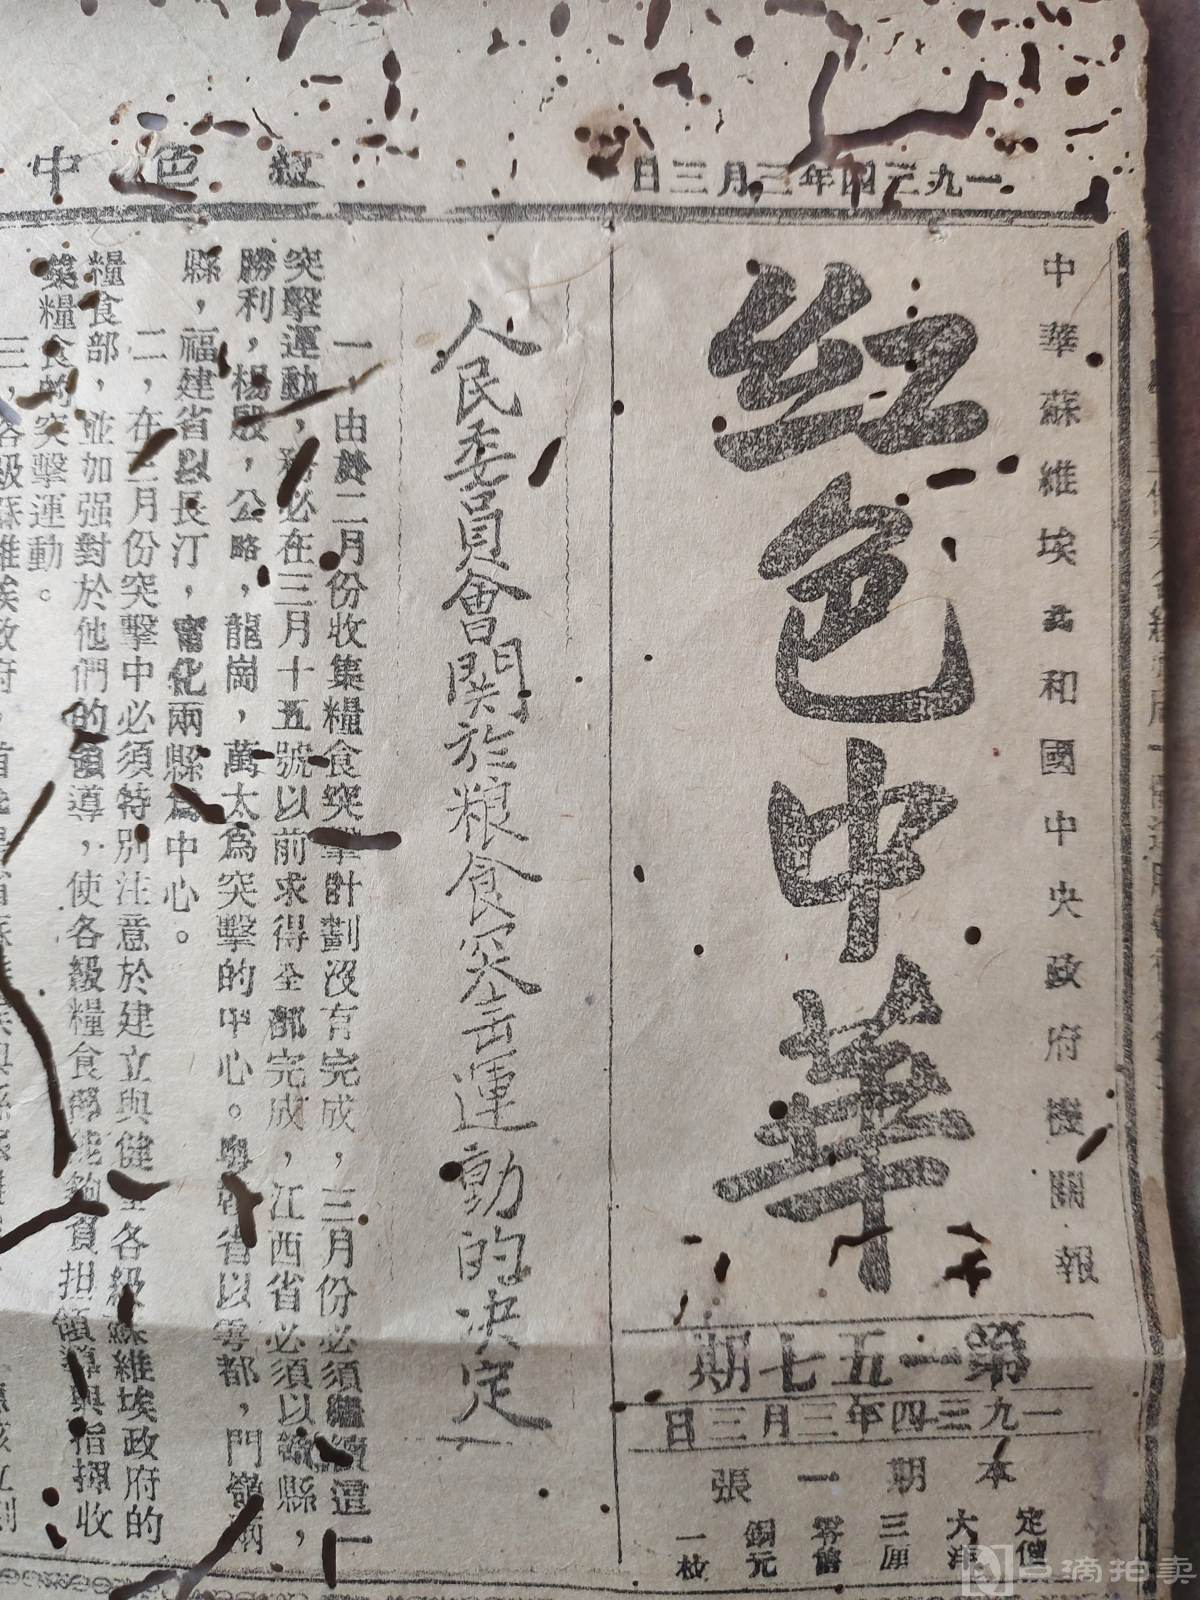 一九三四年三月三日
紅色中
中華蘇維埃共和國中央政府機關報
红色中華
第一五七期
一九三四年三月三日
本期一張
定價
大洋
三厘
零售
銅元
一枚
人民委員會関於粮食突击運動的决定
一，由於二月份收集糧食突擊計劃沒有完成，三月份必須繼續這一
突擊運動，務必在三月十五號以前求得全部完成，江西省必須以縣，
勝利，楊殷，公略，龍崗，萬太為突擊的中心。粵贛省以雩都，門嶺兩
縣，福建省以長汀，寧化兩縣為中心。
二，在三月份突擊中必須特別注意於建立與健全各級蘇維埃政府的
糧食部，並加强對於他們的領導，使各級糧食部能夠負担領導與指揮收
集糧食的突擊運動。
三，各級蘇維埃政府，首先是省蘇
口滴拍卖